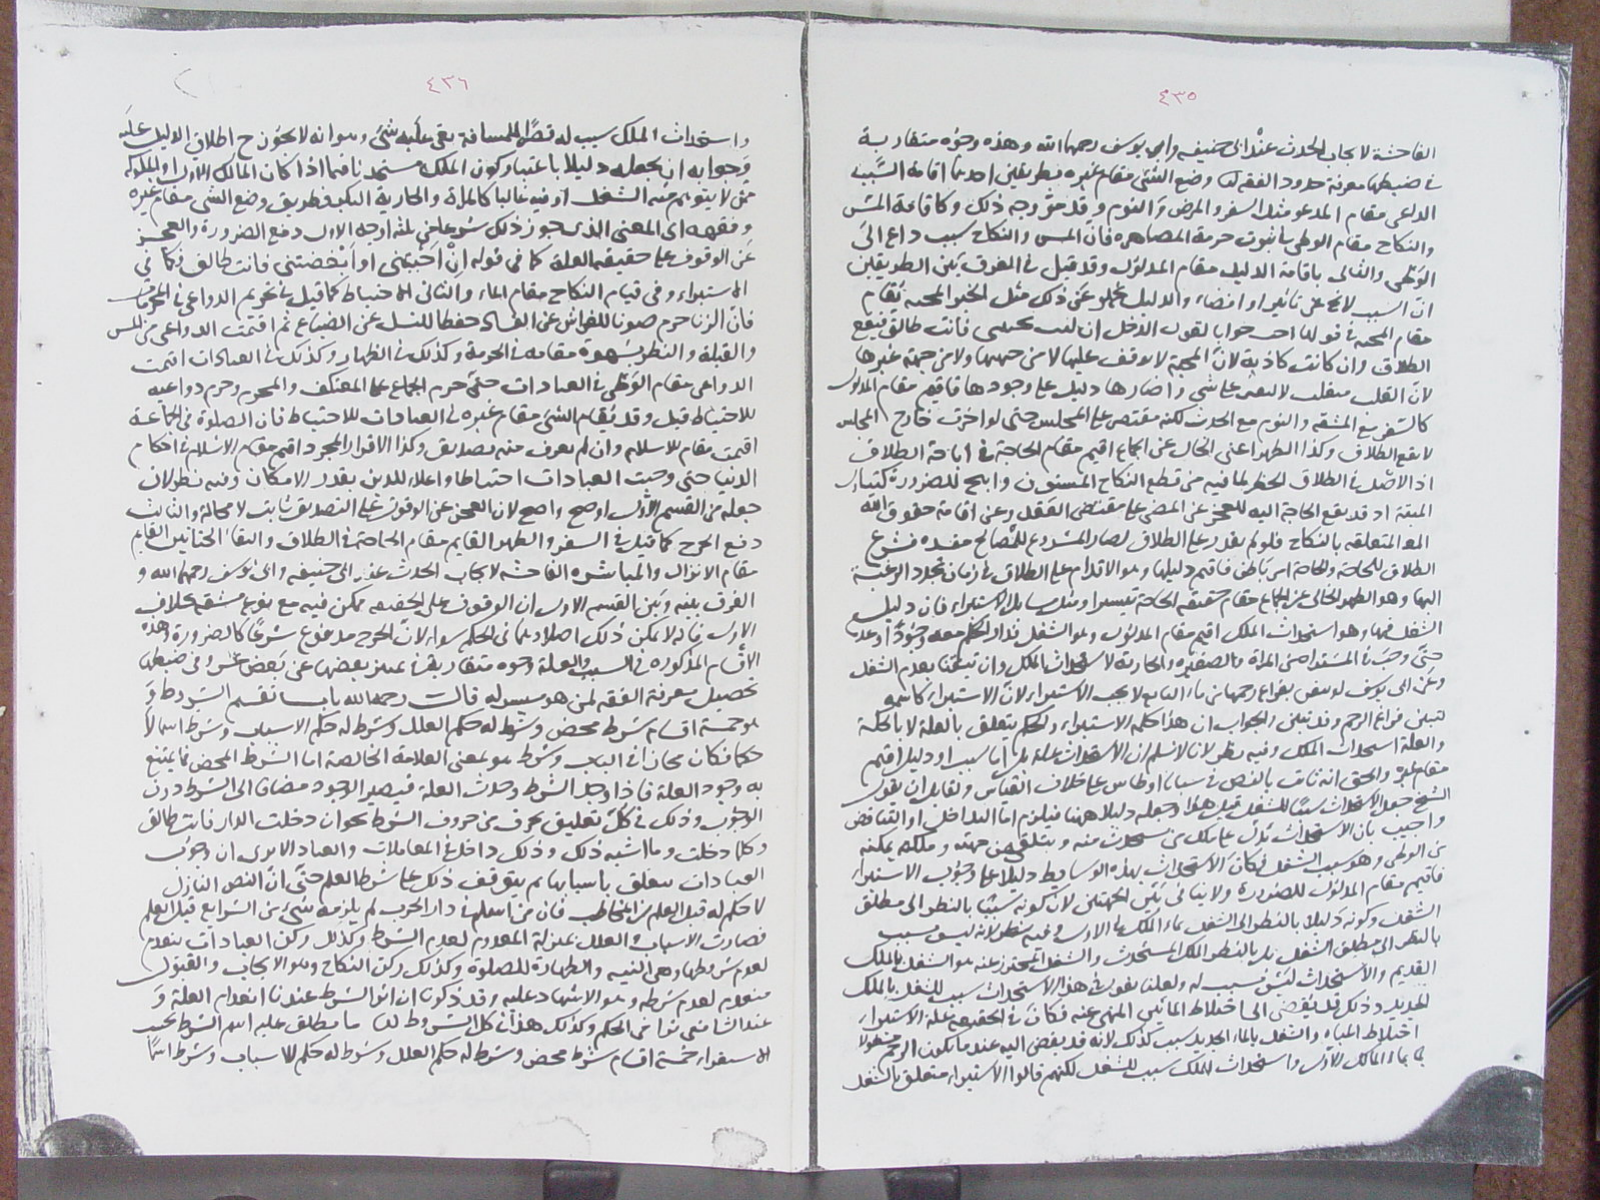 ٤٣٥
الفاحشة لايجاب الحدث عند ابى حنيفه وابى يوسف رحمهما الله وهذه وجوه متقاربة
فى ضبطها معرفة حدود الفقه لنا وضع الشئ مقام غيره بطريقين احدهما اقامة السَّبب
الداعى مقام المدعو مثل السفر والمرض والنوم وقد مرّ وجه ذلك وكاقامة المسّ
والنكاح مقام الوطى ما ثبوت حرمة المصاهرة فان المس والنكاح سبب داع الى
الوطى والثانى باقامة الدليل مقام المدلول وقد قيل فى الفرق بين الطريقين
انّ السبب لا يخ عن تاثير او افضاء والدليل يخلو عن ذلك مثل الخبر المحبه يقام
مقام المحبه فى قولنا جوابا لقول الرجل ان كنت تحبينى فانت طالق فيقع
الطلاق وان كانت كاذبة لانّ المحبة لا يوقف عليها لا من جهتها ولا من جهة غيرها
لانّ القلب متقلب لا يستقر على شئ واخبارها دليل على وجودها فاقيم مقام المدلول
كالسّفر مع المشقه والنوم مع الحدث لكنه مقتصر على المجلس حتى لو اخبرت خارج المجلس
لا يقع الطلاق وكذا الطهر اعنى الخالى عن الجماع اقيم مقام الحاجة فى اباحة الطلاق
اذ الاصل فى الطلاق الحظر لما فيه من قطع النكاح المسنون وابيح للضرورة كتناول
الميتة اذ قد يقع الحاجة اليه للعجز عن المضى على مقتضى العقد وعن اقامة حقوق الله
المتعلقه بالنكاح فلو لم يقدر على الطلاق لصار المشروع للمصالح مفسدة فشرع
الطلاق للحاجة والحاجة امر باطن فاقيم دليلها وهو الاقدام على الطلاق فى زمان تجدد الرغبة
اليها وهو الطهر الخالى عن الجماع مقام حقيقه الحاجة تيسيرا ومثل مسايل الاستبراء فان دليل
الشغل فيها وهو استحداث الملك اقيم مقام المدلول وهو الشغل فدار الحكم معه وجودا وعدما
حتى وجب فى المستبراة من المراة والصغيره والجارية لاستحداث الملك وان تيقنا بعدم الشغل
وعن ابى يوسف لو تيقن بفراغ رحمها من ماء البايع لا يجب الاستبراء لانّ الاستبراء كاسمه
لتبين فراغ الرحم وقد تبين والجواب ان هذا حكمة الاستبراء والحكم يتعلق بالعلة لا بالحكمة
والعلة استحداث الملك وفيه نظر لانا لا نسلم ان الاستحداث علة بل اما سبب او دليل اقيم
مقام غيره والحق انه ثابت بالنص فى سبايا اوطاس على خلاف القياس ولقايل ان يقول
الشيخ جعل الاستحداث سببا للشغل قبل هذا وجعله دليلا ههنا فيلزم اما التداخل او التناقض
واجيب بان الاستحداث يدل على ملك من استحدث منه ويتلقى من جهته وملكه يمكنه
من الوطى وهو سبب الشغل فكان الاستحداث بهذه الوسايط دليلا على وجوب الاستبراء
فاقيم مقام المدلول للضرورة ولا ينافى بين الجهتين لان كونه سببا بالنظر الى مطلق
الشغل وكونه دليلا بالنظر الى الشغل بماء الملك الاول وفيه نظر لانه ليس سبب
بالنظر الى مطلق الشغل بل بالنظر الملك المستحدث والشغل المحترز عنه هو الشغل بالملك
القديم والاستحداث ليس سبب له ولعلنا نقول فى هذا الاستحداث سبب للشغل بالملك
الجديد وذلك قد يفضى الى اختلاط المائين المنهى عنه فكان فى الحقيقه علة الاستبراء
اختلاط المياه والشغل بالماء الجديد سبب لذلك لانه قد يفضى اليه عندما يكون الرحم مشغولا
بماء المالك الاول واستحداث الملك سبب للشغل لكنهم قالوا الاستبراء متعلق بالشغل
٤٣٦
واستحداث الملك سبب له قصرا للمسافة بقى عليه شئ وهو انه لا يجوز ح اطلاق الدليل عليه
وجوابه ان يجعله دليلا باعتبار كون الملك مستحدثا فيما اذا كان المالك الاول او المملوكة
ممن لا يتوهم منه الشغل او فيه غالبا كالمراة والجارية البكر فطريق وضع الشى مقام غيره
وفقهه اى المعنى الذى جوز ذلك شرعا من ثلثة اوجه الاول دفع الضرورة والعجز
عن الوقوف على حقيقه العلة كما فى قوله ان احببتنى او ابغضتنى فانت طالق وكما فى
الاستبراء وفى قيام النكاح مقام الماء والثانى الاحتياط كما قيل فى تحريم الدواعى فى الحرمات
فان الزنا حرم صونا للفراش عن الفساد حفظا للنسل عن الضياع ثم اقيمت الدواعى من المس
والقبلة والنظر بشهوة مقامه فى الحرمة وكذلك فى الظهار وكذلك فى العبادات اقيمت
الدواعى مقام الوطى فى العبادات حتى حرم الجماع على المعتكف والمحرم وحرم دواعيه
للاحتياط قيل وقد يقام الشئ مقام غيره فى العبادات للاحتياط فان الصلوة فى الجماعة
اقيمت مقام الاسلام وان لم يعرف منه تصديق وكذا الاقرار المجرد اقيم مقام الاسلام فى احكام
الدنيا حتى وجبت العبادات احتياطا واعلاء للدين بقدر الامكان وفيه نظر لان
جعله من القسم الاول اوضح واصح لان العجز عن الوقوف على التصديق ثابت لا محالة والثالث
دفع الحرج كما قيل فى السفر والطهر القايم مقام الحاجة فى الطلاق والتقاء الختانين القايم
مقام الانزال والمباشرة الفاحشة لايجاب الحدث عند ابى حنيفه وابى يوسف رحمهما الله و
الفرق بينه وبين القسم الاول ان الوقوف على الحقيقه ممكن فيه مع نوع مشقه بخلاف
الاول فانه لا يمكن ذلك اصلا وهما فى الحكم سواء لانّ الحرج مدفوع شرعا كالضرورة وهذه
الاقسام المذكورة فى السبب والعلة وجوه متقاربة يتميز بعضها عن بعض بعسر وفى ضبطها
تحصيل معرفة الفقه لمن هو ميسر له قالت رحمه الله باب تقسيم الشروط و
هو خمسة اقسام شرط محض وشرط له حكم العلل وشرط له حكم الاسباب وشرط اسما لا
حكما فكان مجازا فى الباب وشرط هو لمعنى العلامة الخالصة اما الشرط المحض فما يمتنع
به وجود العلة فاذا وجد الشرط وجدت العلة فيصير الوجود مضافا الى الشرط دون
الوجوب وذلك فى كل تعليق بحرف من حروف الشرط نحو ان دخلت الدار فانت طالق
وكلما دخلت وما اشبه ذلك وذلك داخل فى المعاملات والعبادات الا ترى ان وجوب
العبادات يتعلق باسبابها ثم يتوقف ذلك على شرط العلم حتى انّ النص النازل
لا حكم له قبل العلم من المخاطب فان من اسلم فى دار الحرب لم يلزمه شئ من الشرايع قبل العلم
فصارت الاسباب والعلل بمنزلة المعدوم لعدم الشرط وكذلك ركن العبادات ينعدم
لعدم شروطها وهى النيه والطهارة للصلوة وكذلك ركن النكاح وهو الايجاب والقبول
منعدم لعدم شرطه وهو الاشهاد عليه وقد ذكرنا ان اثر الشرط عندنا انعدام العلة و
عند الشافعى تراخى الحكم وكذلك هذا فى كل الشروط لنا ما يطلق عليه اسم الشرط بحسب
الاستقراء خمسة اقسام شرط محض وشرط له حكم العلل وشرط له حكم الاسباب وشرط اسما